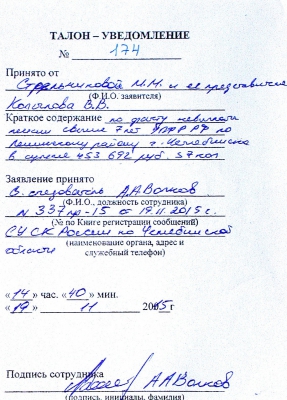 ТАЛОН – УВЕДОМЛЕНИЕ
№ 174
Принято от
Стрельниковой М.М. и ее представителя
(Ф.И.О. заявителя)
Колотова В.В.
Краткое содержание по факту невыплаты
пенсии свыше 7 лет УПФР РФ по
Ленинскому району г. Челябинска
в сумме 453 692 руб. 57 коп
Заявление принято
Ст. следователь А А Волков
(Ф.И.О., должность сотрудника)
N 337пр-15 от 19.11.2015 г.
(№ по Книге регистрации сообщений)
СУ СК России по Челябинской
(наименование органа, адрес и
области
служебный телефон)
«14» час. «40» мин.
«19» 11 2015г
Подпись сотрудника
А А Волков
(подпись, инициалы, фамилия)